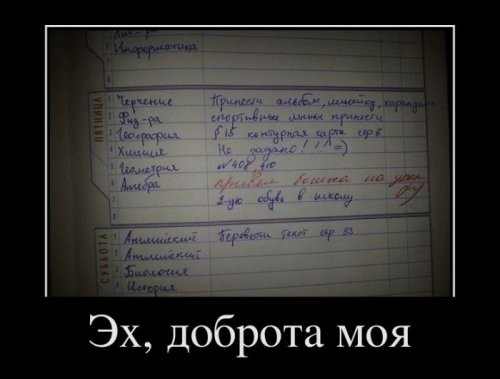 Лит-ра
Информатика
ПЯТНИЦА
1 Черчение Принести альбом, линейку, карандаш
2 Физ-ра спортивные лыжи принести
3 География § 15 контурная карта стр 6
4 Химия Не задано!!!=)
5 Геометрия №408, 410
6 Алгебра на урок
7 2-ую обувь в школу
8
СУББОТА
1 Английский Перевести текст стр 33
2 Английский
3 Биология
4 История
Эх, доброта моя